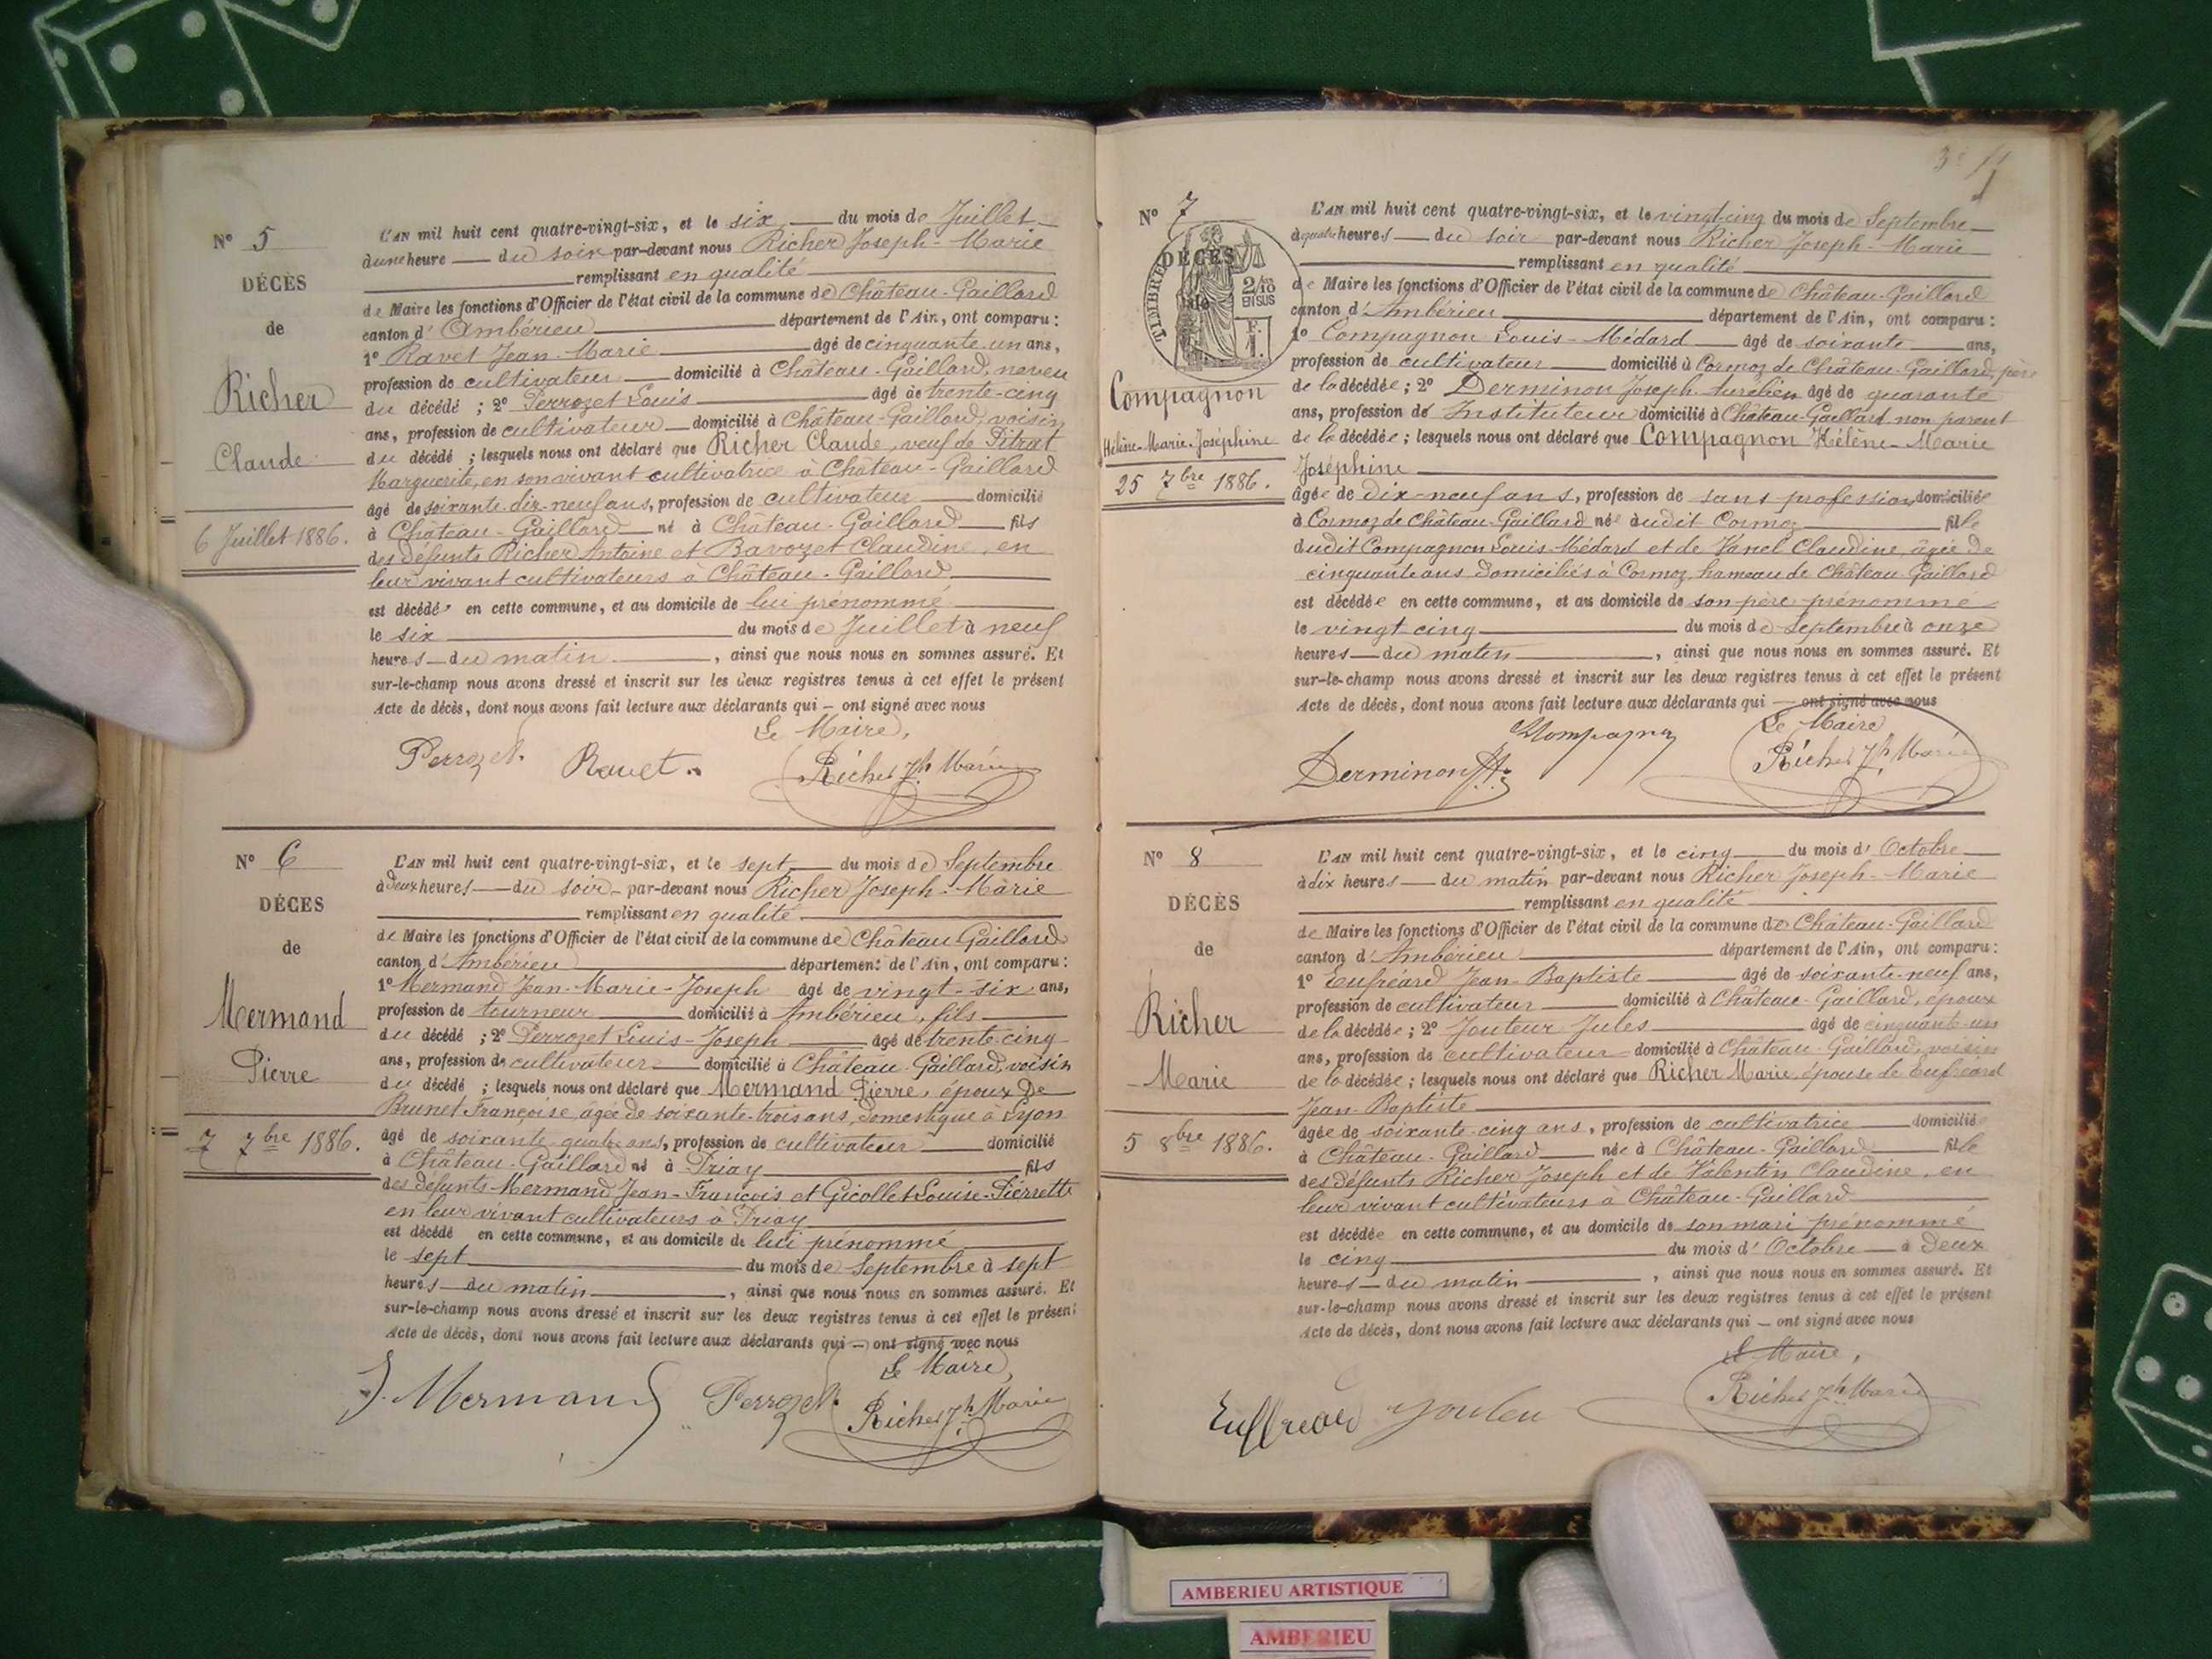 N° 5
DÉCÈS
de
Richer
Claude
6 Juillet 1886.
L'AN mil huit cent quatre-vingt-six, et le six du mois de Juillet
à une heure du soir par-devant nous Richer Joseph-Marie
remplissant en qualité
de Maire les fonctions d'Officier de l'état civil de la commune de Château-Gaillard
canton d'Ambérieu département de l'Ain, ont comparu :
1° Ravet Jean-Marie âgé de cinquante-un ans,
profession de cultivateur domicilié à Château-Gaillard, neveu
du décédé ; 2° Perrozet Louis âgé de trente-cinq
ans, profession de cultivateur domicilié à Château-Gaillard, voisin
du décédé ; lesquels nous ont déclaré que Richer Claude, veuf de Pitrat
Marguerite, en son vivant cultivatrice à Château-Gaillard
âgé de soixante-dix-neuf ans, profession de cultivateur domicilié
à Château-Gaillard né à Château-Gaillard fils
des défunts Richer Antoine et Bavozet Claudine, en
leur vivant cultivateurs à Château-Gaillard
est décédé en cette commune, et au domicile de lui prénommé
le six du mois de Juillet à neuf
heures du matin, ainsi que nous nous en sommes assuré. Et
sur-le-champ nous avons dressé et inscrit sur les deux registres tenus à cet effet le présent
Acte de décès, dont nous avons fait lecture aux déclarants qui — ont signé avec nous
Le Maire,
Perrozet. Ravet. Richer Jh Marie
N° 6
DÉCES
de
Mermand
Pierre
7 7bre 1886.
L'AN mil huit cent quatre-vingt-six, et le sept du mois de Septembre
à deux heures du soir par-devant nous Richer Joseph-Marie
remplissant en qualité
de Maire les fonctions d'Officier de l'état civil de la commune de Château Gaillard
canton d'Ambérieu département de l'Ain, ont comparu :
1° Mermand Jean-Marie-Joseph âgé de vingt-six ans,
profession de tourneur domicilié à Ambérieu, fils
du décédé ; 2° Perrozet Louis-Joseph âgé de trente-cinq
ans, profession de cultivateur domicilié à Château-Gaillard, voisin
du décédé ; lesquels nous ont déclaré que Mermand Pierre, époux de
Brunet Françoise, âgée de soixante-trois ans, domestique à Lyon
âgé de soixante-quatre ans, profession de cultivateur domicilié
à Château-Gaillard né à Priay fils
des défunts Mermand Jean-François et Gicollet Louise-Pierrette
en leur vivant cultivateurs à Priay
est décédé en cette commune, et au domicile de lui prénommé
le sept du mois de Septembre à sept
heures du matin, ainsi que nous nous en sommes assuré. Et
sur-le-champ nous avons dressé et inscrit sur les deux registres tenus à cet effet le présent
Acte de décès, dont nous avons fait lecture aux déclarants qui — ont signé avec nous
Le Maire,
J. Mermand Perrozet. Richer Jh Marie
N° 7
DÉCÈS
TIMBRE
2/10
EN SUS
Compagnon
Hélène-Marie-Joséphine
25 7bre 1886.
L'AN mil huit cent quatre-vingt-six, et le vingt-cinq du mois de Septembre
à quatre heures du soir par-devant nous Richer Joseph-Marie
remplissant en qualité
de Maire les fonctions d'Officier de l'état civil de la commune de Château-Gaillard
canton d'Ambérieu département de l'Ain, ont comparu :
1° Compagnon Louis-Médard âgé de soixante ans,
profession de cultivateur domicilié à Cormoz de Château-Gaillard, père
de la décédée ; 2° Derminon Joseph-Aurélien âgé de quarante
ans, profession de Instituteur domicilié à Château-Gaillard non parent
de la décédée ; lesquels nous ont déclaré que Compagnon Hélène-Marie
Joséphine
âgée de dix-neuf ans, profession de sans profession domiciliée
à Cormoz de Château-Gaillard née audit Cormoz fille
dudit Compagnon Louis-Médard et de Vanel Claudine, âgée de
cinquante ans domiciliés à Cormoz, hameau de Château-Gaillard
est décédée en cette commune, et au domicile de son père prénommé
le vingt-cinq du mois de Septembre à onze
heures du matin, ainsi que nous nous en sommes assuré. Et
sur-le-champ nous avons dressé et inscrit sur les deux registres tenus à cet effet le présent
Acte de décès, dont nous avons fait lecture aux déclarants qui — ont signé avec nous
Le Maire
Derminon Compagnon Richer Jh Marie
N° 8
DÉCÈS
de
Richer
Marie
5 8bre 1886.
L'AN mil huit cent quatre-vingt-six, et le cinq du mois d'Octobre
à dix heures du matin par-devant nous Richer Joseph-Marie
remplissant en qualité
de Maire les fonctions d'Officier de l'état civil de la commune de Château-Gaillard
canton d'Ambérieu département de l'Ain, ont comparu :
1° Eufréard Jean-Baptiste âgé de soixante-neuf ans,
profession de cultivateur domicilié à Château-Gaillard, époux
de la décédée ; 2° Jouteur Jules âgé de cinquante-un
ans, profession de cultivateur domicilié à Château-Gaillard, voisin
de la décédée ; lesquels nous ont déclaré que Richer Marie, épouse de Eufréard
Jean-Baptiste
âgée de soixante-cinq ans, profession de cultivatrice domiciliée
à Château-Gaillard née à Château-Gaillard fille
des défunts Richer Joseph et de Valentin Claudine, en
leur vivant cultivateurs à Château-Gaillard
est décédée en cette commune, et au domicile de son mari prénommé
le cinq du mois d'Octobre à deux
heures du matin, ainsi que nous nous en sommes assuré. Et
sur-le-champ nous avons dressé et inscrit sur les deux registres tenus à cet effet le présent
Acte de décès, dont nous avons fait lecture aux déclarants qui — ont signé avec nous
Le Maire,
Richer Jh Marie
AMBERIEU ARTISTIQUE
AMBERIEU